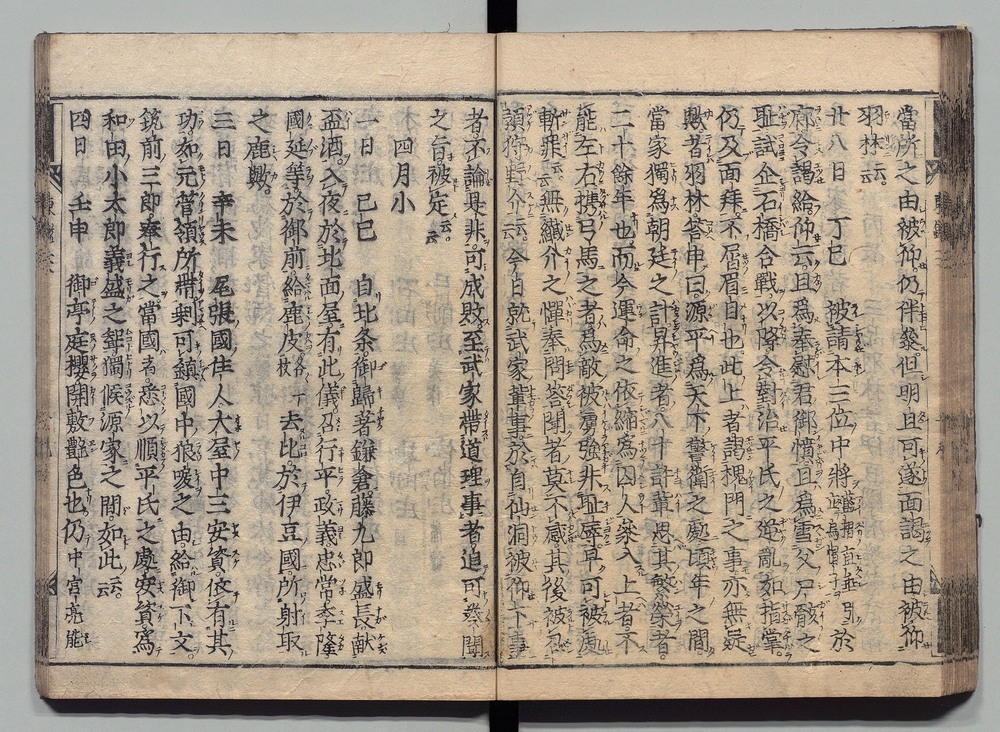 當所之由被仰仍伴參但明旦可遂面謁之由被仰
羽林云云
廿八日　丁巳　被請本三位中將藍摺直垂引立烏帽子於
廊令謁給仰云且爲奉慰君御憤且爲雪父尸骸之
耻試企石橋合戰以降令對治平氏之逆亂如指掌
仍及面拜不屑眉目也此上者謁槐門之事亦無疑
歟者羽林荅申曰源平爲天下警衛之處頃年之間
當家獨爲朝廷之計昇進者八十許輩思其繁榮者
二十餘年也而今運命之依縮爲囚人參入上者不
能左右携弓馬之者爲敵被虜強非耻辱早可被處
斬罪云云無纎介之憚奉問荅聞者莫不感其後被召
預狩野介云云今日就武家輩事於自仙洞被仰下事
者不論是非可成敗至武家帶道理事者追可奏聞
之旨被定云云
四月小
一日　己巳　自北条御歸著鎌倉藤九郎盛長献
盃酒入夜於北面屋有此儀召行平政義忠常季隆
國延等於御前給鹿皮各一枚去比於伊豆國所射取
之鹿歟
三日　辛未　尾張國住人大屋中三安資依有其
功如元菅領所帶剰可鎮國中狼唳之由給御下文
筑前三郎奉行之當國者悉以順平氏之處安資爲
和田小太郎義盛之聟獨候源家之間如此云云
四日　壬申　御亭庭櫻開敷艶色也仍中宮亮能